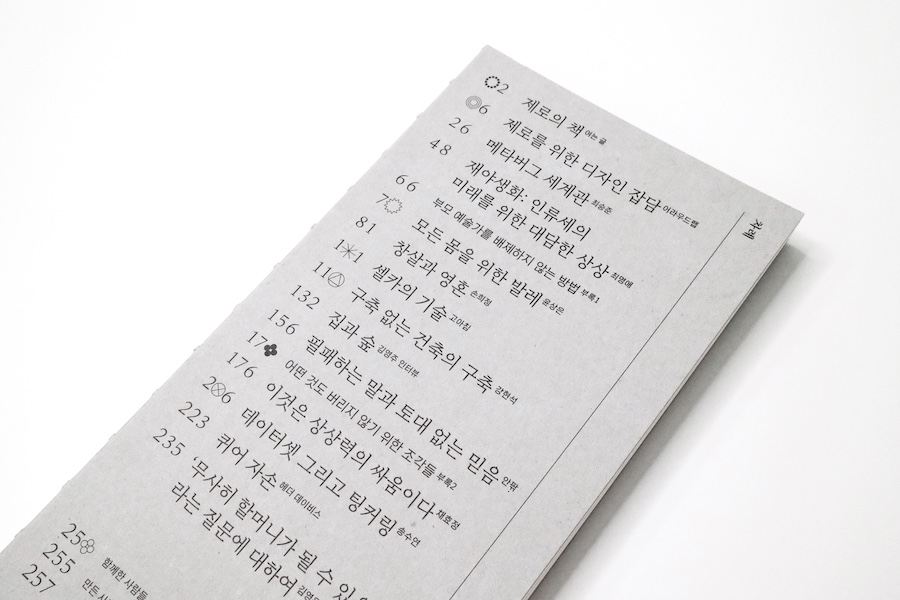 차례
02 제로의 책 여는 글
06 제로를 위한 디자인 잡담 어라우드랩
26 메타버그 세계관 최승준
48 재야생화: 인류세의
미래를 위한 대담한 상상 최명애
66 부모 예술가를 배제하지 않는 방법 부록1
70 모든 몸을 위한 발레 윤상은
81 창살과 영혼 손희정
1✳1 셀카의 기술 고아침
11 구축 없는 건축의 구축 강현석
132 집과 숲 김영주 인터뷰
156 필패하는 말과 토대 없는 믿음 안팎
17 어떤 것도 버리지 않기 위한 조각들 부록2
176 이것은 상상력의 싸움이다 채효정
206 데이터셋 그리고 팅커링 송수연
223 퀴어 자손 헤더 데이비스
235 ‘무사히 할머니가 될 수 있
라는 질문에 대하여
25 함께한 사람들
255 만든
257